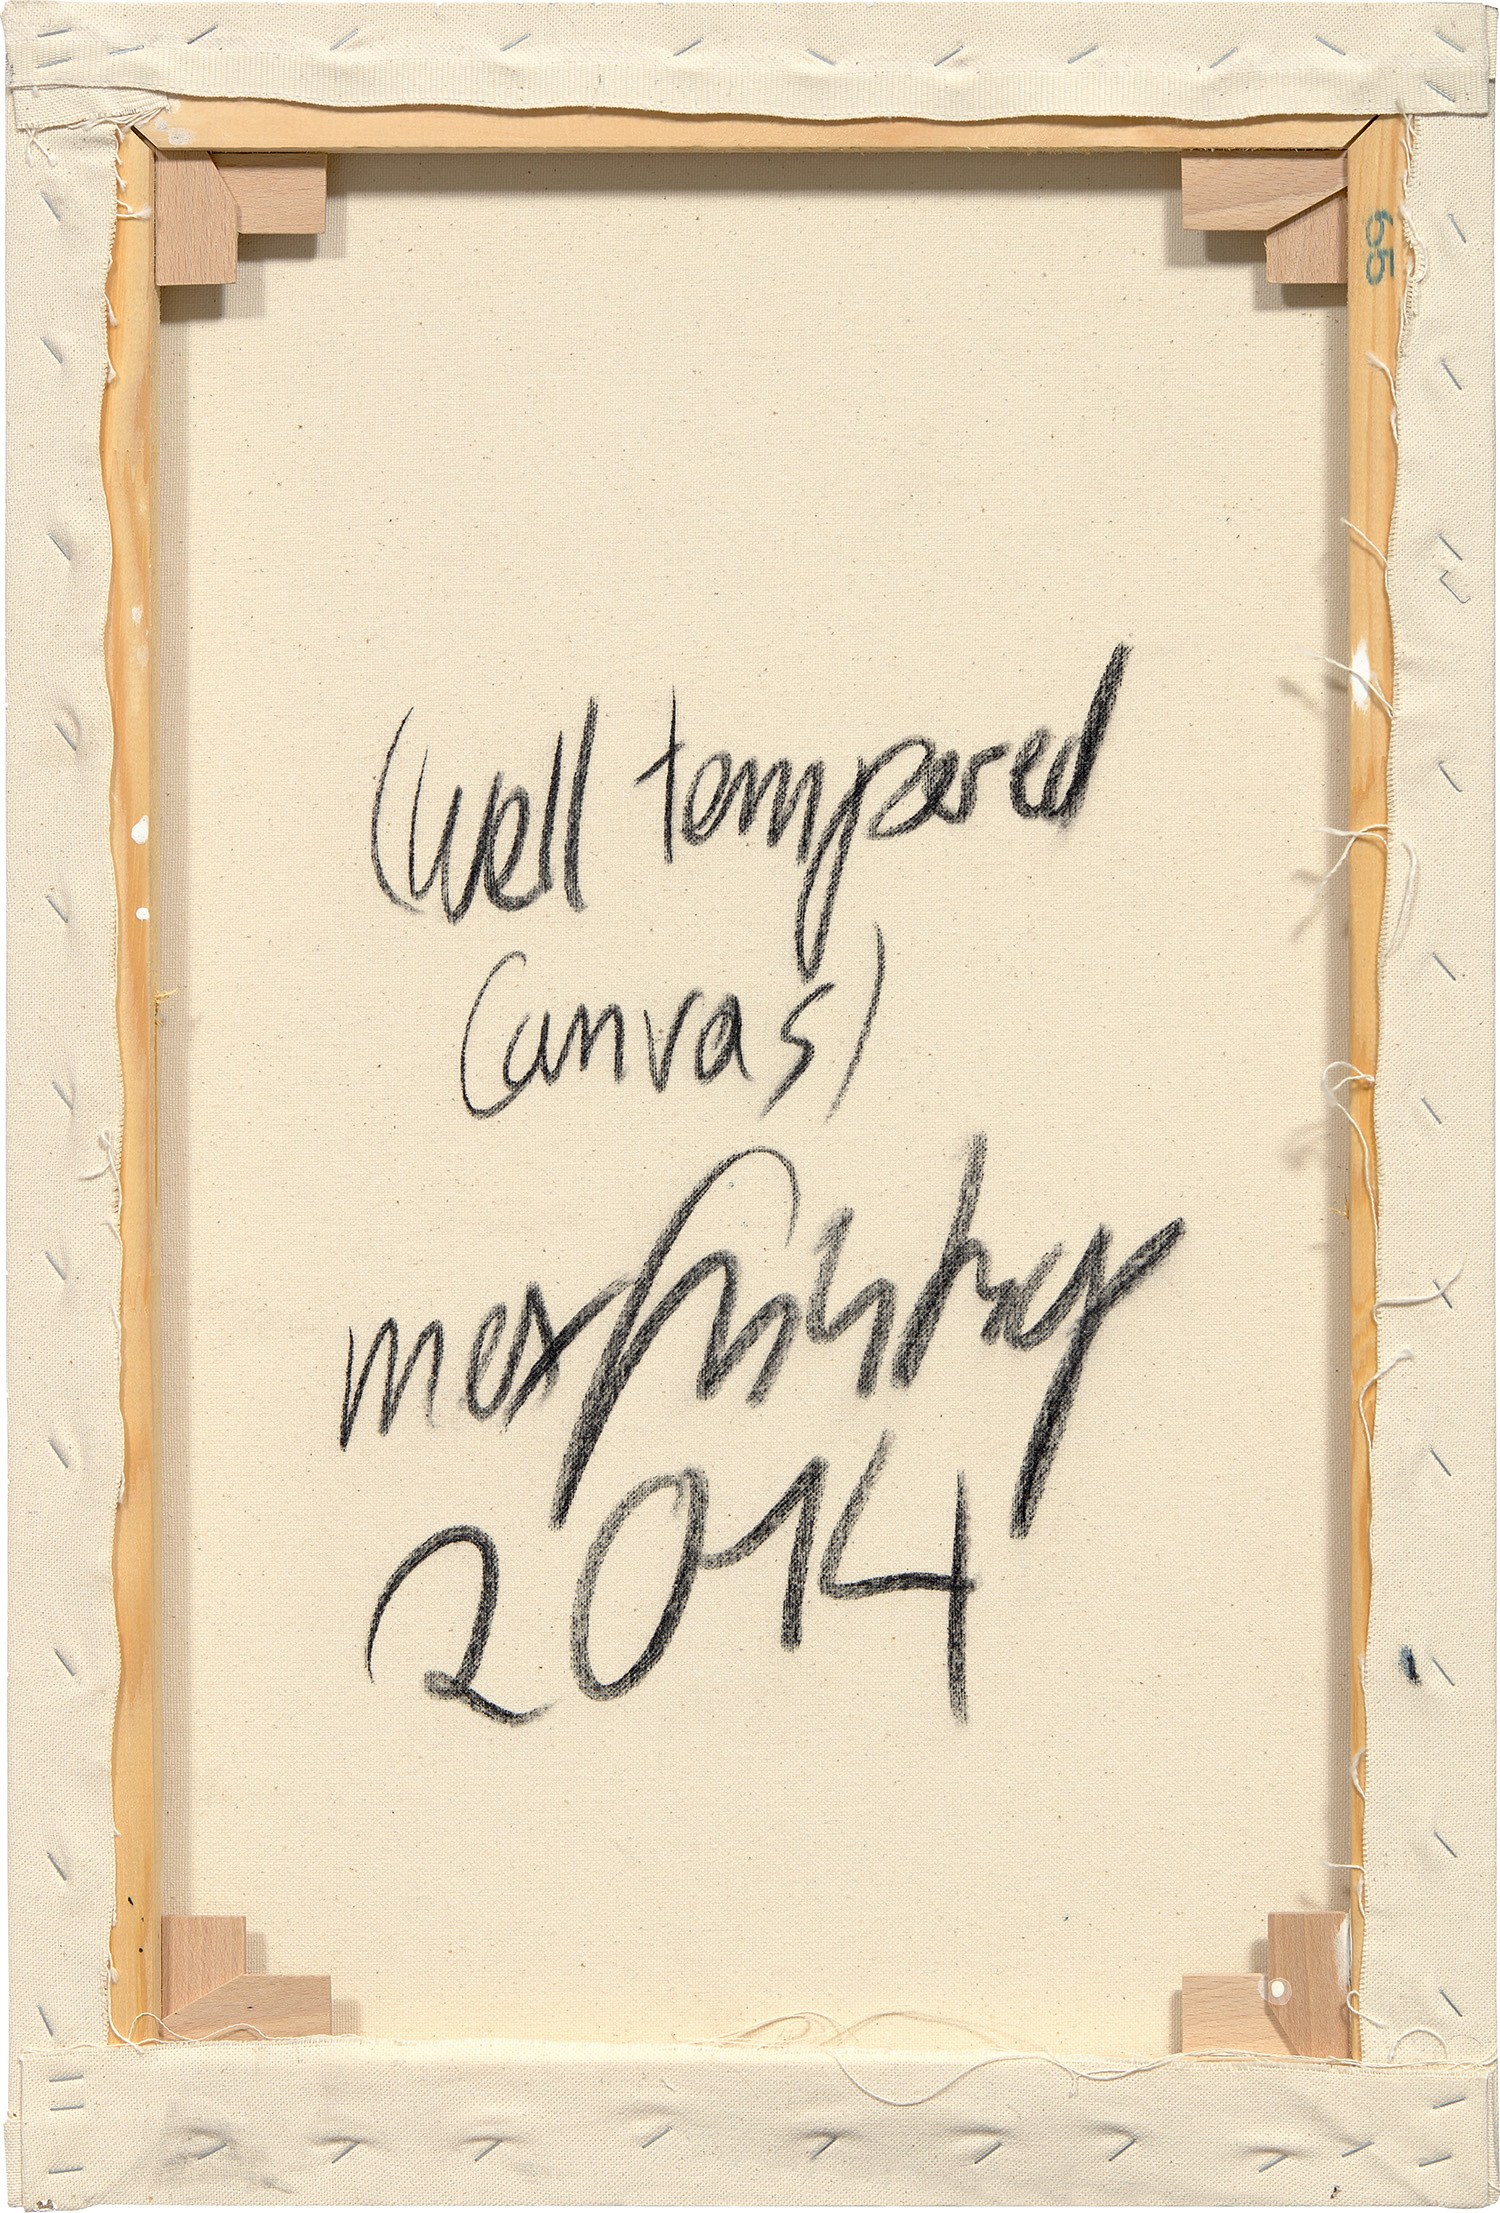 65
(well tempered
Canvas)
max frintrop
2014